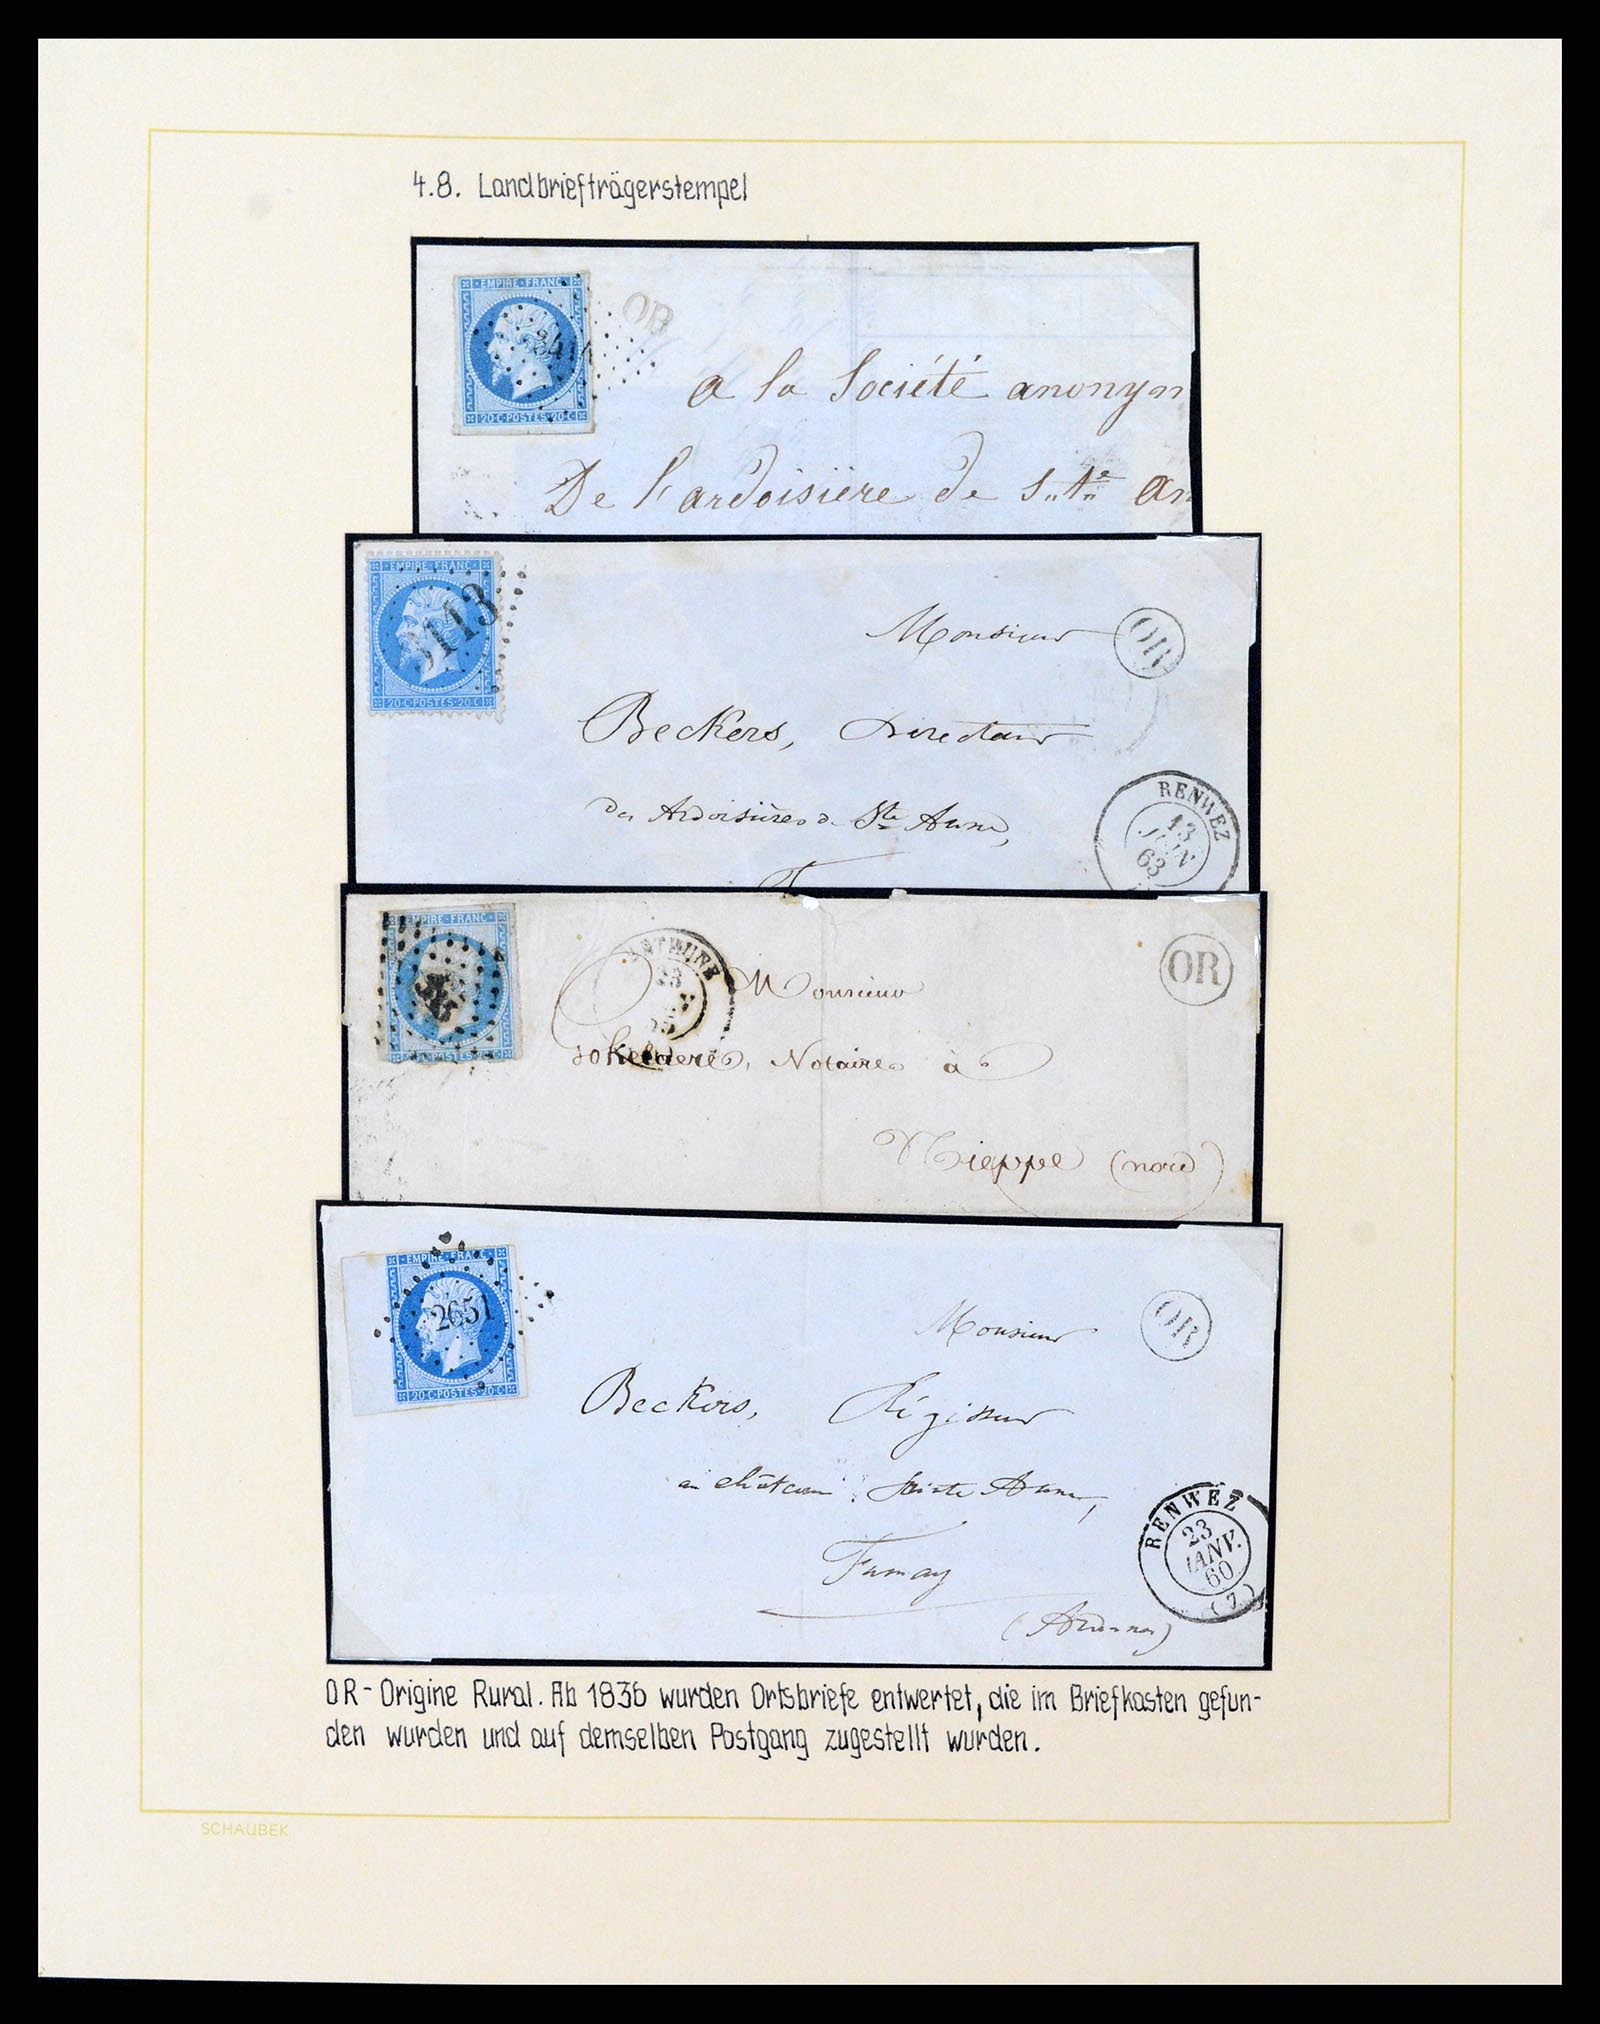 4.8. Landbriefträgerstempel
EMPIRE · FRANC
20·C·POSTES·20·C
OR
a la Société anonym
De l'ardoisière de Ste an
EMPIRE · FRANC
3113
20·C·POSTES·20·C
Monsieur
OR
Beckers, Directeur
des Ardoisières de Ste Anne,
RENWEZ
13
JUIN
63
EMPIRE · FRANC
23
OR
Monsieur
Notaire à
Nieppe (nord)
EMPIRE FRANC
2651
20·C·POSTES·20·C
Monsieur
OR
Beckers, Régisseur
au château Sainte Anne,
Fumay
(Ardennes)
RENWEZ
23
JANV.
60
(7)
OR - Origine Rural. Ab 1836 wurden Ortsbriefe entwertet, die im Briefkasten gefun-
den wurden und auf demselben Postgang zugestellt wurden.
SCHAUBEK